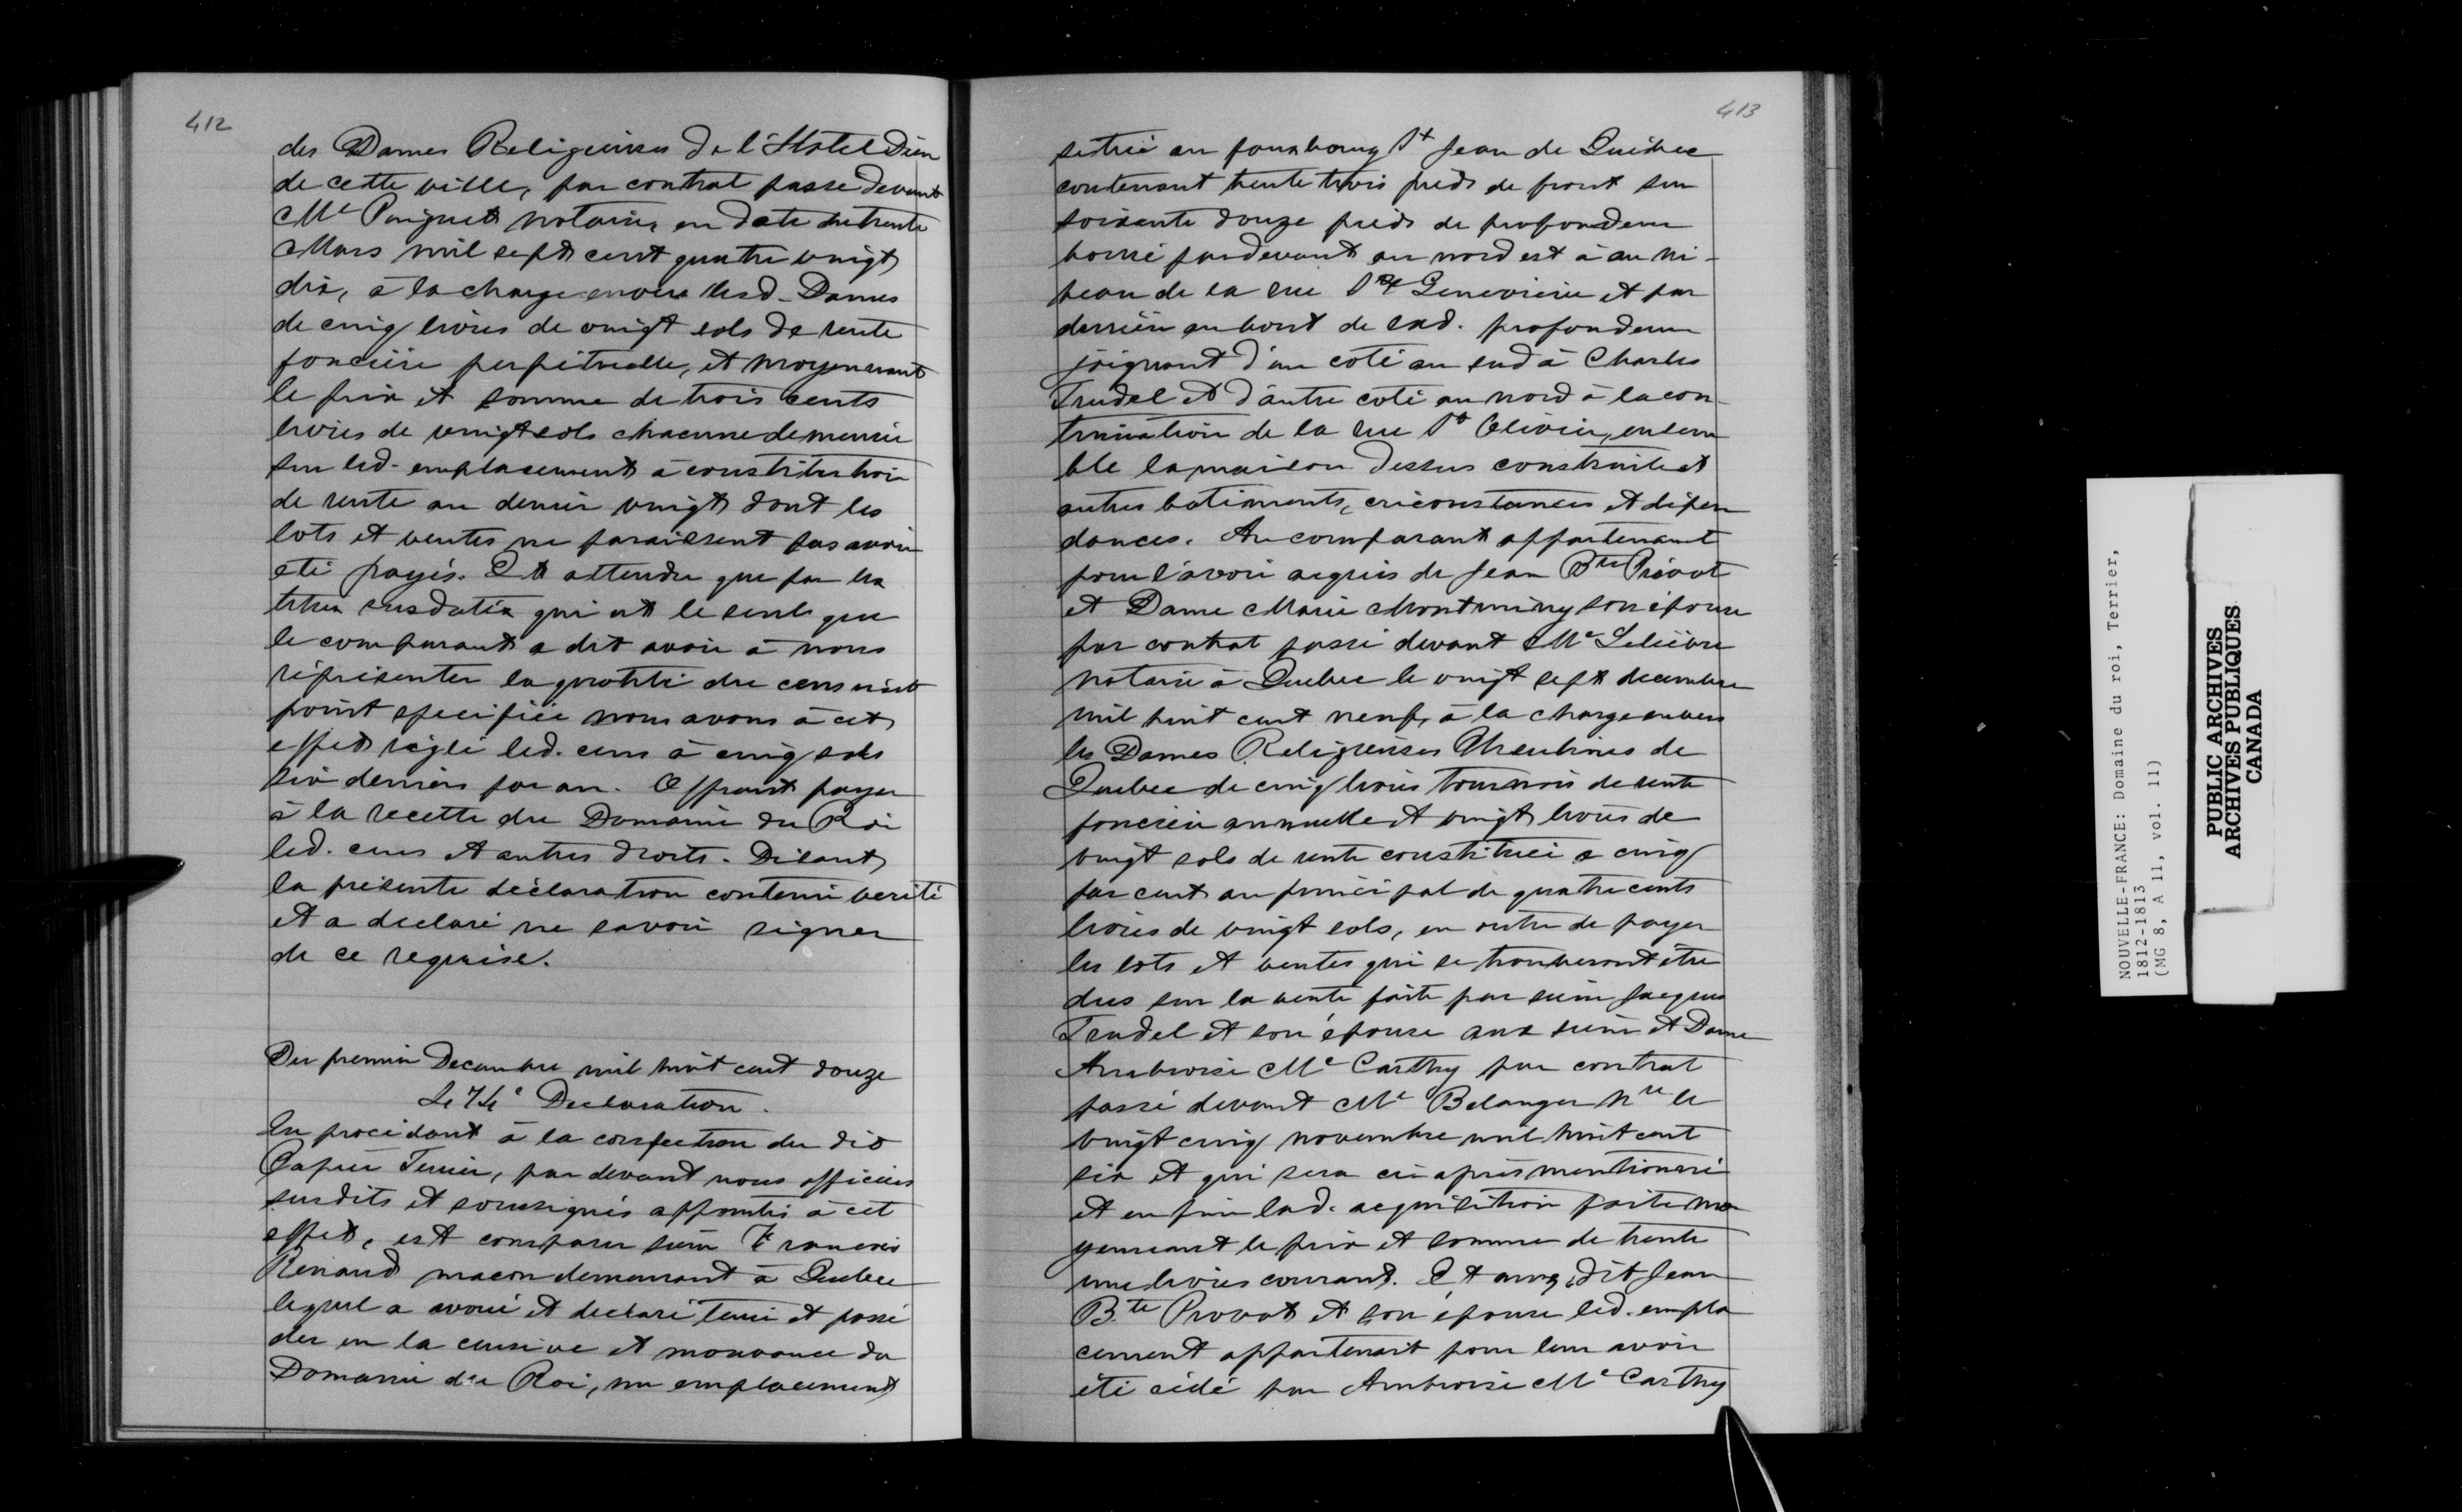 412
des Dames Religieuses de l'Hotel Dieu
de cette ville, par contrat passé devant
Me Panguet notaire, en date du trente
Mars mil sept cent quatre vingt
dix, à la charge envers lesd. Dames
de cinq livres de vingt sols de rente
foncière perpétuelle, et moyennant
le prix et somme de trois cents
livres de vingt sols chacune demeurée
sur led. emplacement à constitution
de rente au denier vingt dont les
lots et ventes ne paraissent pas avoir
eté payés. Et attendu que par les
titres susdatés qui est le seul que
le comparant a dit avoir à nous
réprésenter la quotité du cens n'est
point specifiée nous avons à cet
effet réglé led. cens à cinq sols
six deniers par an. Offrant payer
à la recette du Domaine du Roi
led. cens et autres droits. Disant
la présente déclaration contenir verité
et a declaré ne savoir signer
de ce requise.
Du premier Decembre mil huit cent douze
Declaration.
En procédant à la confection du dit
Papier Terrier, par devant nous officiers
susdits et soussignés appointés à cet
effet, est comparu sieur Francois
Renaud macon demeurant à Quebec
lequel a avoué et declaré tenir et possé
der en la censive et mouvance du
Domaine du Roi, un emplacement
413
situé au fauxbourg St Jean de Québec
contenant trente trois pieds de front sur
soixante douze pieds de profondeur
borné pardevant au nord est à au ni-
veau de la rue Ste Genevieve et par
derrière au bout de lad. profondeur
joignant d'un coté au sud à Charles
Trudel et d'autre coté au nord à la con-
tinuation de la rue St Olivier, ensem
ble la maison dessus construite et
autres batiments, circonstances et dépen
dances. Au comparant appartenant
pour l'avoir acquis de Jean Bte Prévot
et Dame Marie Montminy son épouse
par contrat passé devant Me Lelièvre
notaire à Quebec le vingt sept decembre
mil huit cent neuf, à la charge envers
les Dames Religieuses Ursulines de
Quebec de cinq livres tournois de rente
foncière annuelle et vingt livres de
vingt sols de rente constituée a cinq
par cent au principal de quatre cents
livres de vingt sols, en outre de payer
les lots et ventes qui se trouveront être
dus sur la vente faite par sieur Jacques
Trudel et son épouse aux sieur et Dame
Ambroise Mc Carthy par contrat
passé devant Me Belanger Nre le
vingt cinq novembre mil huit cent
six et qui sera ci après mentionné
et enfin lad. acquisition faite mo
yennant le prix et somme de trente
une livres courant. Et aux dit Jean
Bte Provot et son épouse led. empla
cement appartenait pour leur avoir
été cédé par Ambroise Mc Carthy
NOUVELLE-FRANCE: Domaine du roi, Terrier,
1812-1813
(MG 8, A 11, vol. 11)
PUBLIC ARCHIVES
ARCHIVES PUBLIQUES
CANADA